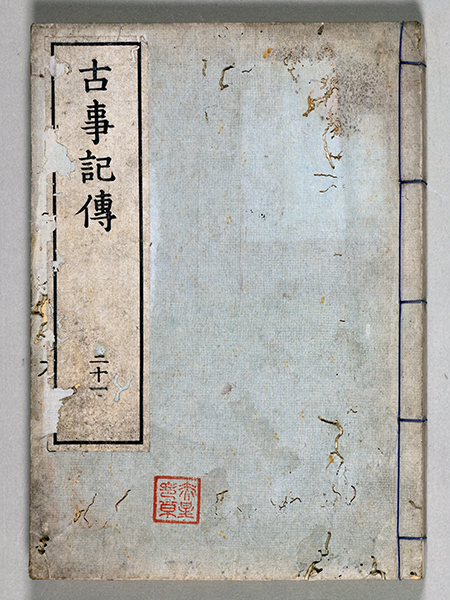 古事記傳
二十一